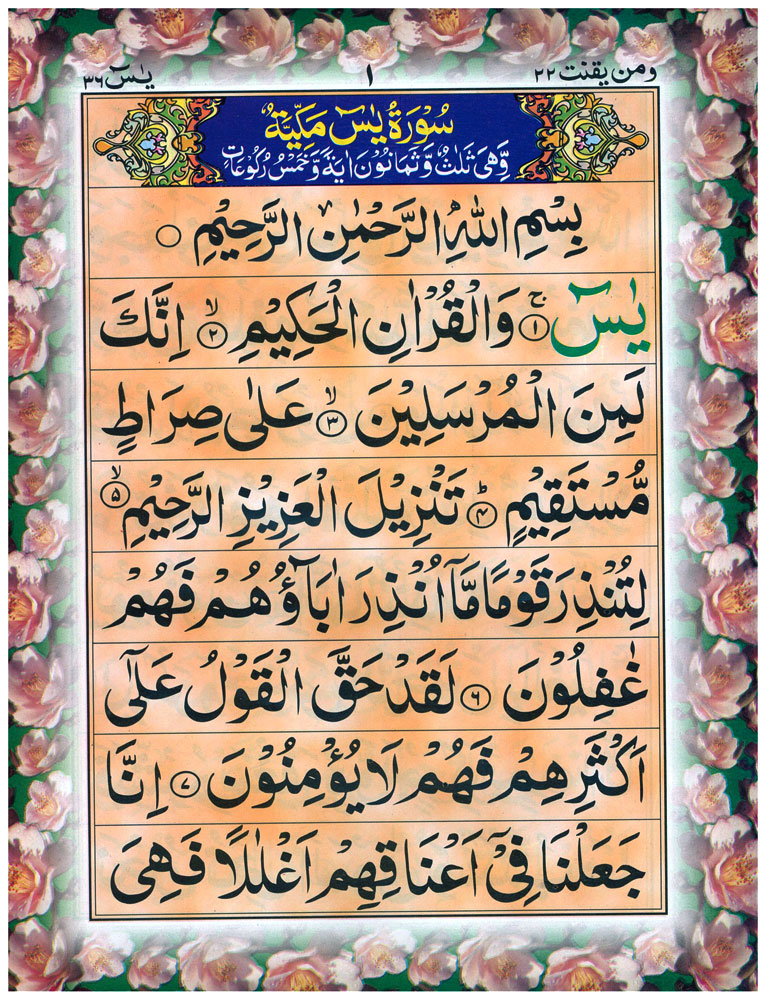 ومن يقنت ٢٢ ١ يٰسٓ ٣٦
سُوْرَةُ يٰسٓ مَكِّيَّةٌ
وَّهِىَ ثَلٰثٌ وَّثَمَانُوْنَ اٰيَةً وَّخَمْسُ رُكُوْعَاتٍ
بِسْمِ اللّٰهِ الرَّحْمٰنِ الرَّحِيْمِ ○
يٰسٓ ۚ﴿١﴾ وَالْقُرْاٰنِ الْحَكِيْمِ ۙ﴿٢﴾ اِنَّكَ
لَمِنَ الْمُرْسَلِيْنَ ۙ﴿٣﴾ عَلٰى صِرَاطٍ
مُّسْتَقِيْمٍ ؕ﴿۴﴾ تَنْزِيْلَ الْعَزِيْزِ الرَّحِيْمِ ۙ﴿۵﴾
لِتُنْذِرَ قَوْمًا مَّاۤ اُنْذِرَ اٰبَآؤُهُمْ فَهُمْ
غٰفِلُوْنَ ﴿۶﴾ لَقَدْ حَقَّ الْقَوْلُ عَلٰٓى
اَكْثَرِهِمْ فَهُمْ لَا يُؤْمِنُوْنَ ﴿٧﴾ اِنَّا
جَعَلْنَا فِىْۤ اَعْنَاقِهِمْ اَغْلٰلًا فَهِىَ